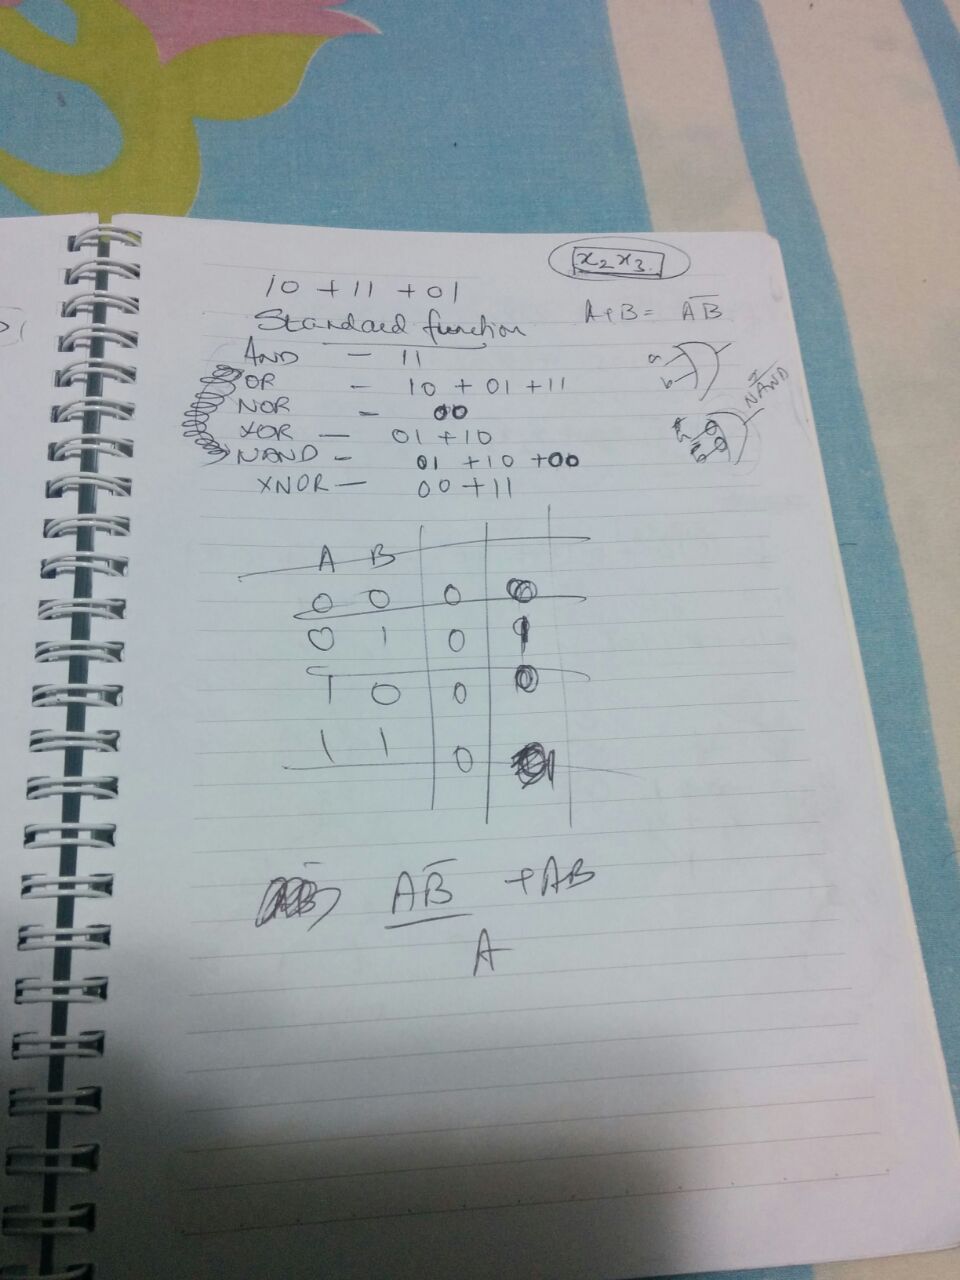 x₂x₃.
10 + 11 + 01
A+B = A͞B͞
Standard function
AND — 11
OR — 10 + 01 + 11
NOR — 00
XOR — 01 + 10
NAND — 01 + 10 + 00
XNOR — 00 + 11
a
b
NAND
A B
0 0 0
0 1 0 1
1 0 0 0
1 1 0 1
AB̅ + AB
A